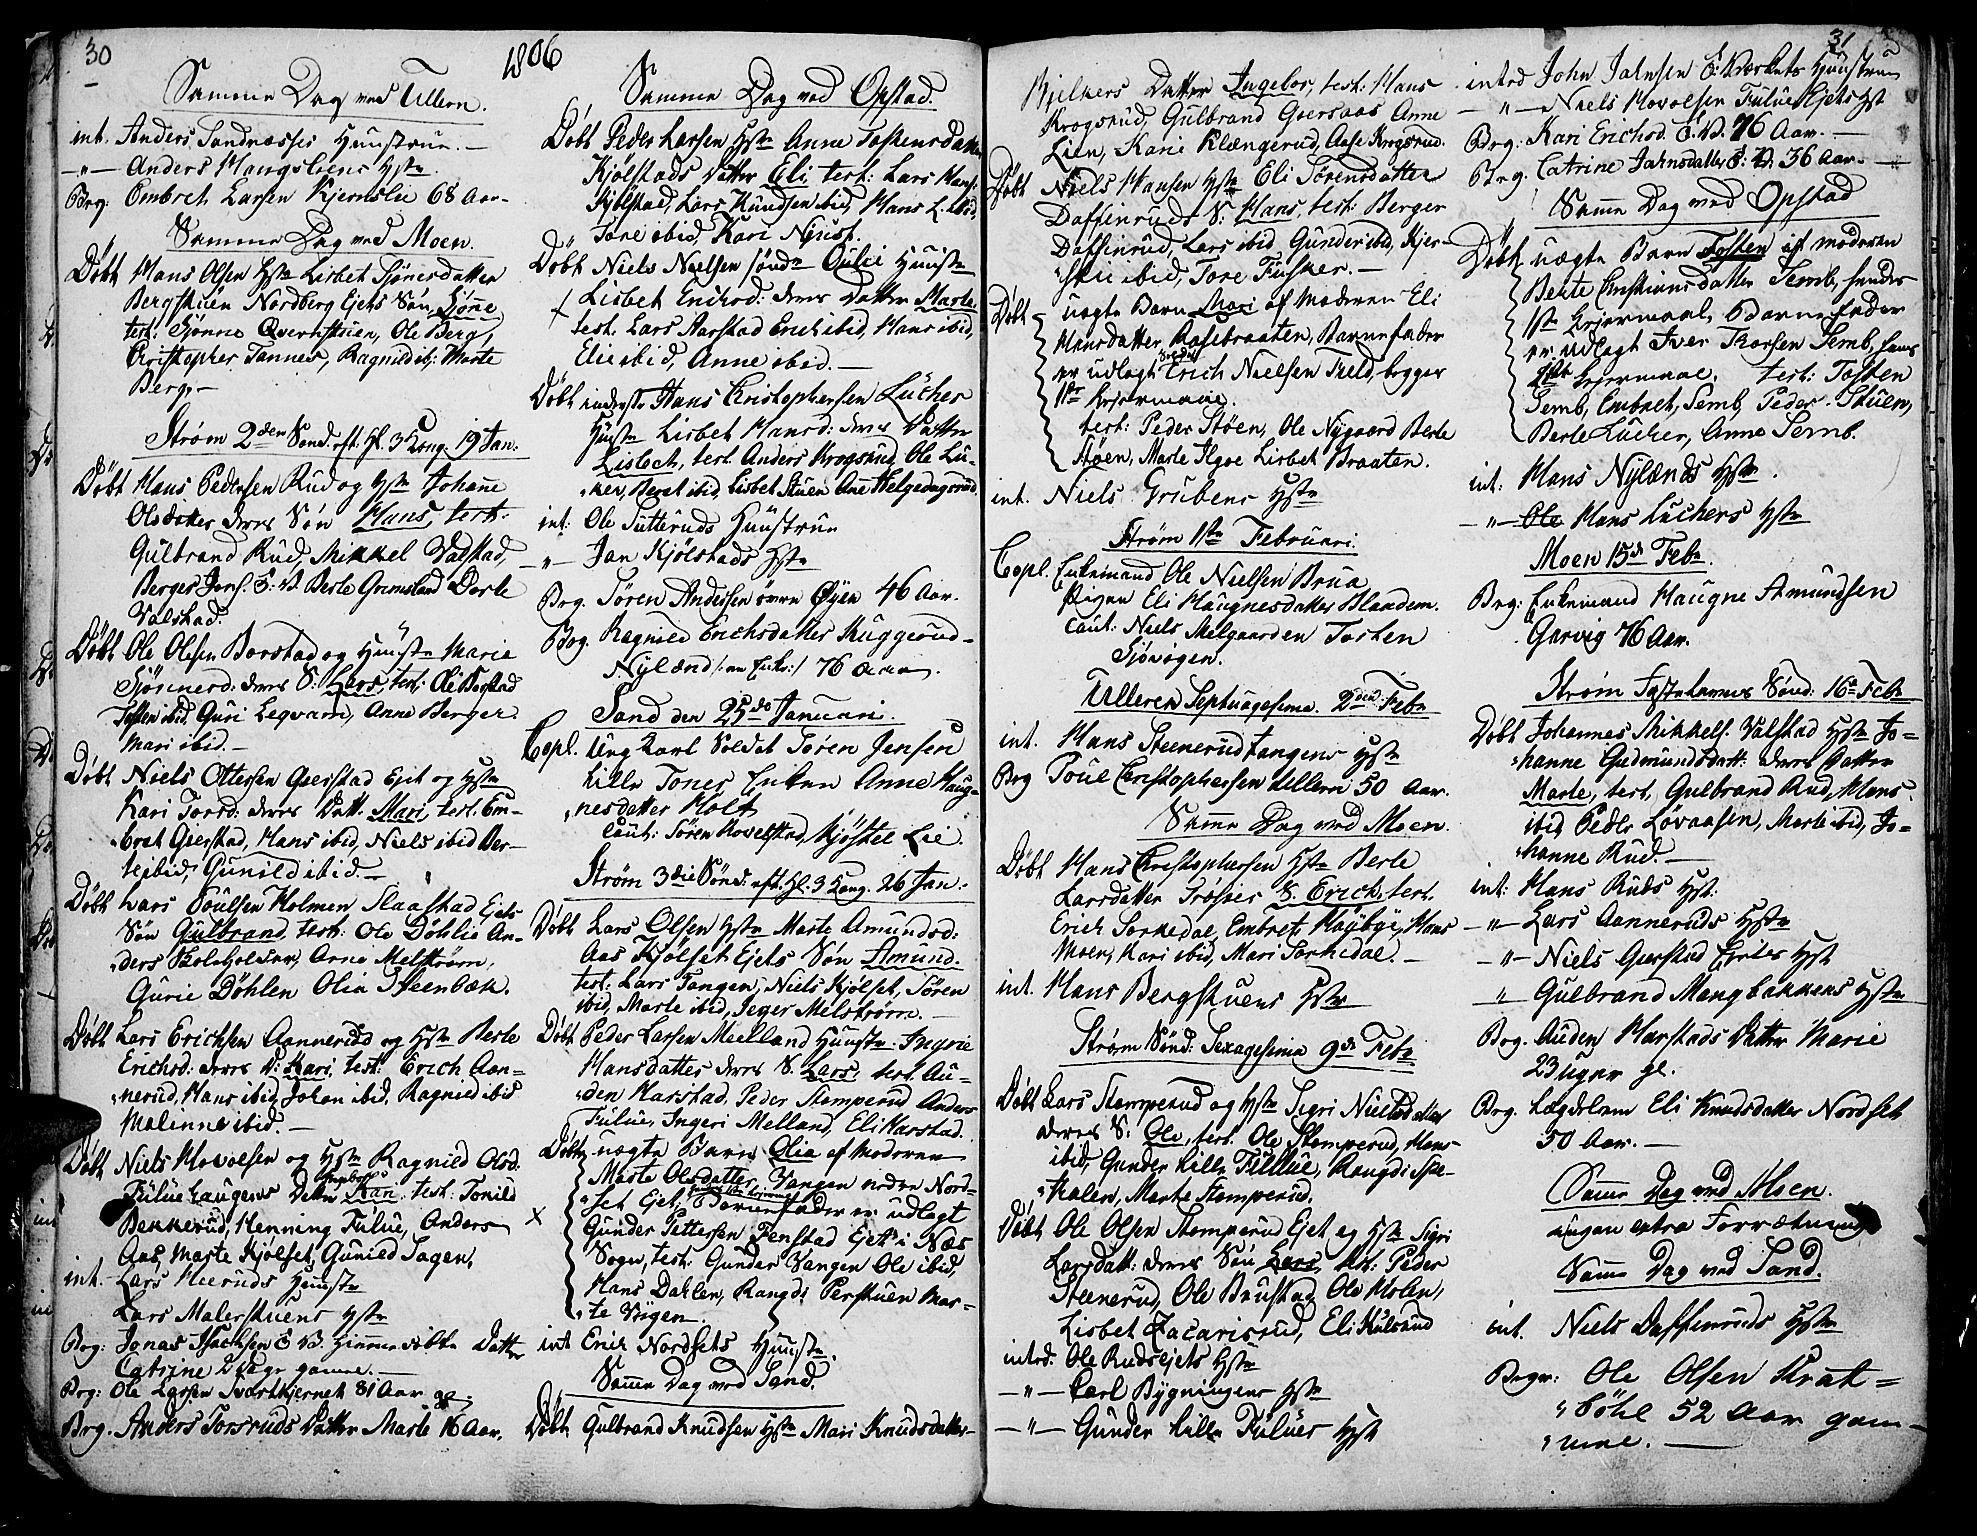 30
1806
Samme Dag ved Ullern.
int. Anders Sandnesses Huustrue. —
—"— Anders Haugsliens Hstr.
Brg: Embret Larsen Kjernslie 68 Aar.
Samme Dag ved Moen.
Døbt Hans Olsen Hstr Lisbet Siönesdatter
Bergskuen Nordberg Ejets Sön, Siönne,
test: Siönne Overnstuen, Ole Berg,
Christopher Tannes, Ragnild ib; Marte
Berg. —
Strøm 2den Sönd. eft. Hl. 3 Kong. 19 Jan.
Døbt Hans Pedersen Rud og Hstr Johane
Olsdatter deres Sön Hans, test:
Gulbrand Rud, Mikkel Valstad,
Berger Jens. E: V. Berte Grimstad Dorte
Valstad.
Døbt Ole Olsen Borstad og Huustr Marie
Siönnesd: deres S: Lars, test: Ole Borstad
Tosten ibid, Guri Legvam, Anne Berger.
Mari ibid. —
Døbt Niels Ottersen Gierstad Ejet og Hstr
Kari Torsd: deres Datt. Mari, test. Em-
bret Gierstad, Hans ibid, Niels ibid Ber-
te ibid, Gunild ibid. —
Døbt Lars Poulsen Holmen Slaastad Ejets
Sön Gulbrand, test: Ole Döhlie An-
ders Skoleholder, Arne Melström,
Gurie Döhlen Olia Steenbæk.
Døbt Lars Erichsen Aannerud og Hstr Berte
Erichsd: deres D: Kari, test: Erich Aan-
nerud, Hans ibid, Johan ibid, Ragnild ibid
Malenne ibid. —
Døbt Niels Hovolsen og Hstr Ragnild Olsd.
Fuluehaugens Datter Ingeborg test: Tonild
Bekkerud, Henning Fulue, Anders
Aas, Marte Kjölset, Gunild Sagen,
int. Lars Heeruds Huustr
Lars Malerstuens Hstr
Brg: Jonas Isachsen E V. hiemmedöbte Datter
Catrine 2 Dage gamle. —
Brg: Ole Larsen Svartkjernet 81 Aar gl.
Brg. Anders Torsruds Datter Marte 16 Aar.
Samme Dag ved Opstad.
Døbt Peder Larsen Hstr Anne Tostensdatter
Kjölstads Datter Eli test: Lars Hans:
Kjölstad, Lars Knudsen ibid, Hans L. ibid,
Tore ibid, Kari Nyust.
Døbt Niels Nielsen söndr Oulie Huustr
Lisbet Erichsd: deres Datter Marte
test. Lars Aarstad Erich ibid, Hans ibid,
Elie ibid, Anne ibid. —
Døbt inderste Hans Christophersen Lücher
Hustr Lisbet Hansd: deres Datter
Lisbeth, test. Anders Krogsrud Ole Lu-
ker, Beret ibid, Lisbet Stuen Ane Helgedagsrud.
int: Ole Tutteruds Huustrue
—"— Jan Kjölstads Hstr
Brg. Sören Andersen övre Öyen 46 Aar.
Brg. Ragnild Erichsdatter Skuggerud-
Nylænd /: en Enke :/ 76 Aar.
Sand den 25de Januari.
Copl. Ung Karl Soldat Sören Jensen
Lille Tones Enken Anne Haug-
nesdatter Holt
Caut: Sören Hovelstad, Kjöstel Lie.
Strøm 3die Sönd: eft. Hl. 3 Kong. 26 Jan:
Døbt Lars Olsen Hstr Marte Amundsd:
Aas Kjölset Ejets Sön Amund.
test: Lars Tangen, Niels Kjölset, Sören
ibid, Marte ibid, Inger Melström. —
Døbt Peder Larsen Meelland Huustr: Ingrie
Hansdatter deres S. Lars, test. Au-
den Harstad, Peder Stomperud Anders
Fulue, Ingeri Melland, Eli Harstad.
Døbt uægte Barn Olia af Moderen
Marte Olsdatter Vangen nedre Nord-
set Ejet, Barnefader er udlagt
Gunder Pettersen Fenstad Ejet i Næs
Sogn, test: Gunder Vangen Ole ibid,
Hans Dahlen, Rangdi Perstuen Mar-
te Vigen.
int Erich Nordsets Huustr.
Samme Dag ved Sand.
Døbt Gulbrand Knudsen Hstr Mari Knudsdatter
31
Bjelkers Datter Ingebor, test: Hans
Krogsrud, Gulbrand Goersaas Anne
Lien, Karie Klængerud, Aase Krogsrud.
Døbt Niels Hansen Hstr Eli Sörensdatter
Daffinruds S: Hans, test: Berger
Daffinrud, Lars ibid, Gunder ibid, Kjer-
stie ibid, Tore Fusker. —
Døbt uægte Barn Mari af Moderen Eli
Hansdatter Rasebraaten, Barnefader
er udlagt Erich Nielsen Feld, begges
1ste Lejermaal.
test: Peder Stöen, Ole Nygaard Berte
Stöen, Marte Ilgoe Lisbet Braaten.
int. Niels Grubens Hstr
Strøm 1ste Februari.
Copl. Enkemand Ole Nielsen Brua
Pigen Eli Haugnesdatter Blaadem.
Caut: Niels Melgaarden Tosten
Siövogen.
Ulleren Septuagesima. 2den Febr
int. Hans Steenerudtangens Hstr
Brg Poul Christophersen Ullern 50 Aar.
Samme Dag ved Moen.
Døbt Hans Christophersen Hstr Berte
Larsdatter Grösses S. Erich, test.
Erich Torkedal, Embret Haybye, Hans
Moen, Kari ibid, Mari Torkedal. —
int. Hans Bergstuens Hstr
Strøm Sönd: Sexagesima 9de Febr
Døbt Lars Stomperud og Hstr Sigri Nielsdatter
deres S: Ole, test. Ole Stomperud, Hans
ibid, Gunder Lille Fulue, Rangdi Spe-
talen, Marte Stomperud.
Døbt Ole Olsen Stomperud Ejet og Hstr Sigri
Larsdatt: deres Sön Lars, test: Peder
Steenerud, Ole Brustad Ole Molen,
Lisbet Zacarisrud, Eli Kulsrud
introd. Ole Rudsejets Hstr
—"— Carl Bygningens Hstr
—"— Gunder Lille Fulues Hstr
introd John Jahnsen E: Værkets Huustrue
—"— Niels Hovolsen Fulue Ejets Hst
Brg: Kari Erichsd. E: V. 76 Aar. —
Brg. Catrine Jahnsdatter E: V. 36 Aar. —
Samme Dag ved Opstad
Døbt uægte Barn Tosten af Moderen
Berte Christiansdatter Semb, hendes
1ste Lejermaal, Barnefader
er udlagt Iver Thorsen Semb, hans
2det Lejermaal. test: Tosten
Semb, Embret, Semb, Peder Stuen,
Berte Lücher, Anne Semb.
int: Hans Nylænds Hstr.
—"— Ole Hans Luchers Hstr
Moen 15de Febr.
Brg: Enkemand Haugne Amundsen
Garvig 76 Aar.
Strøm Fastelavns Sönd: 16de Febr
Døbt Johannes Mikkels. Valstad Hstr Jo-
hanne Gudmundsdatt: deres Datter
Marte, test. Gulbrand Rud, Hans
ibid, Peder Lövaasen, Marte ibid, Jo-
hanne Rud. —
int: Hans Ruds Hst.
—"— Lars Aanneruds Hstr
—"— Niels Gierstad Ejets Hst
—"— Gulbrand Mangbakkens Hstr
Brg. Auden Harstads Datter Marie
23 uger gl.
Brg. Lægdslem Eli Knudsdatter Nordset
50 Aar. —
Samme Dag ved Moen.
ingen extra Forretning
Samme Dag ved Sand.
int. Niels Daffinruds Hstr
Brgr: Ole Olsen Krak-
böhl 52 Aar gam-
mel. —